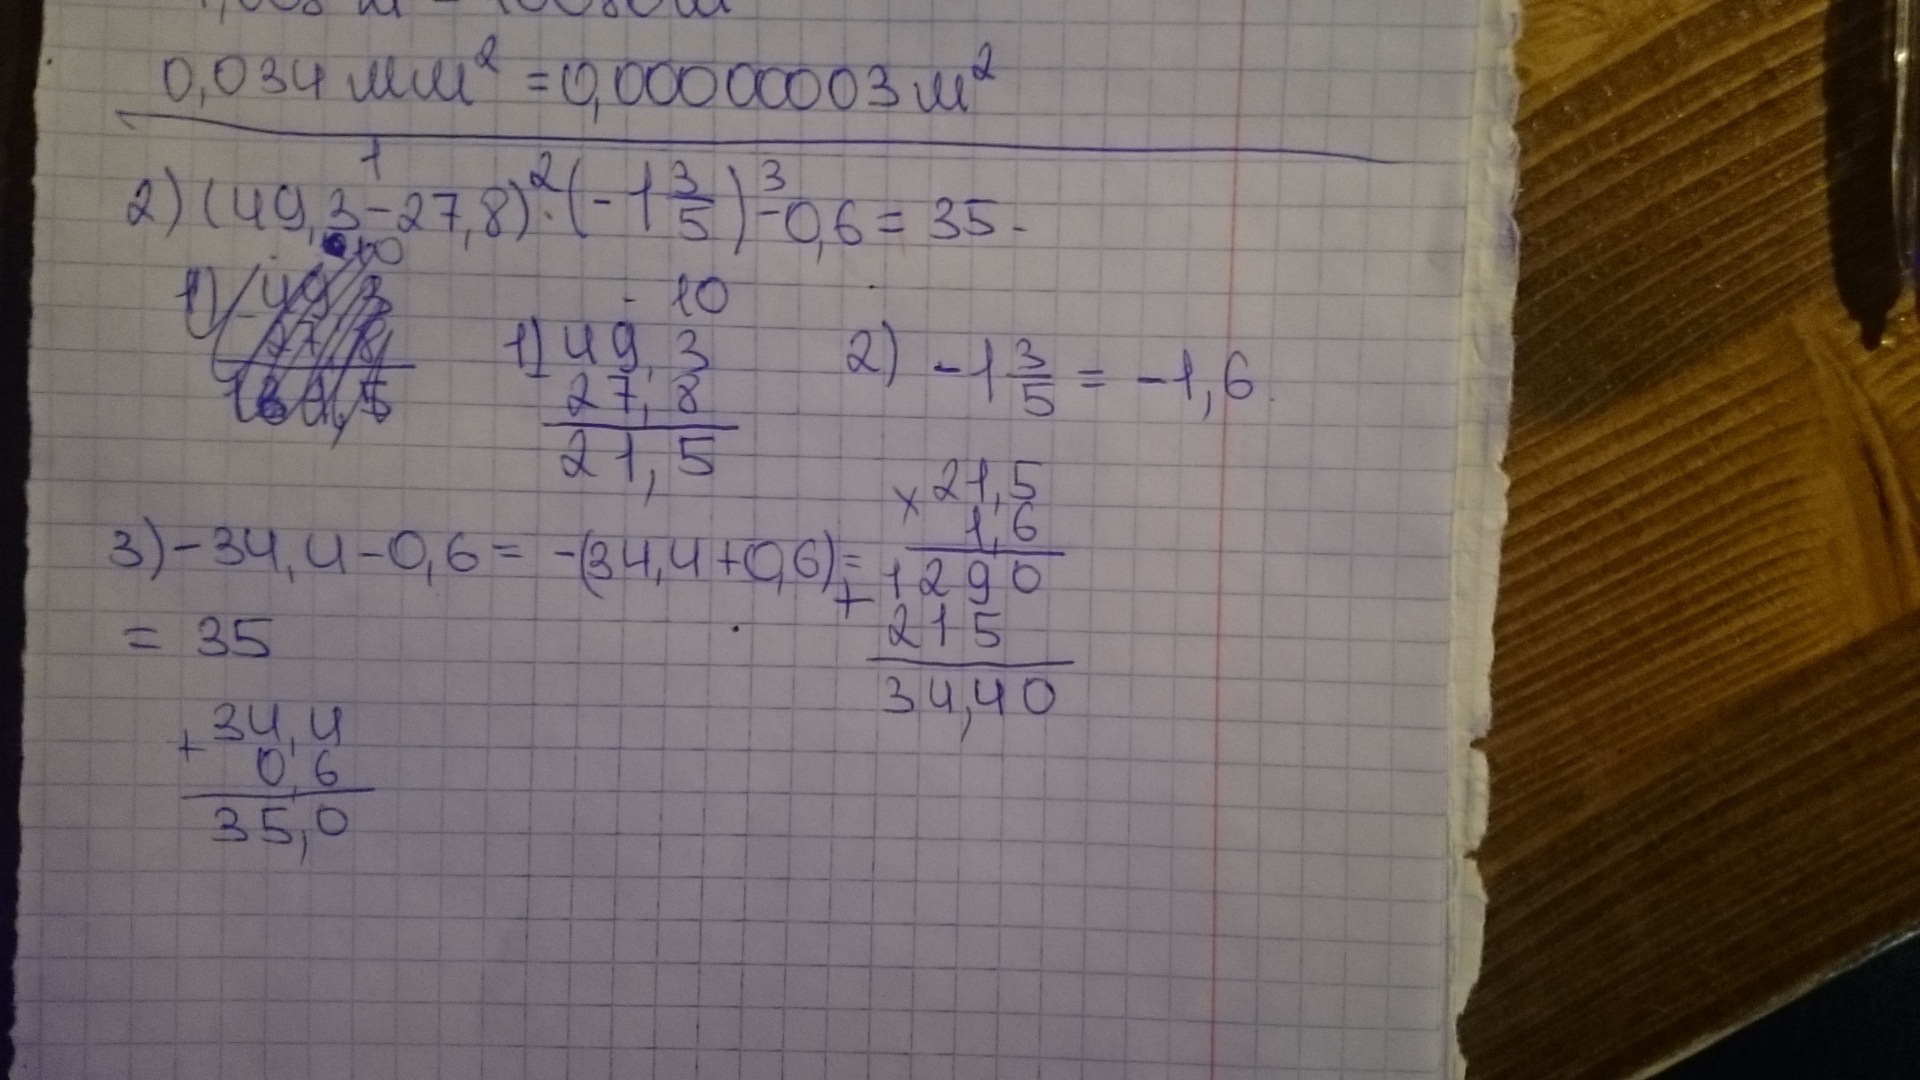 0,034 мм² = 0,00000003 м²
1 2 3
2) (49,3-27,8)·(-1 3/5)-0,6 = 35-
10
1) 49,3
27,8
21,5
2) -1 3/5 = -1,6.
× 21,5
1,6
+ 1290
215
34,40
3) -34,4-0,6 = -(34,4+0,6) =
= 35
+ 34,4
0,6
35,0